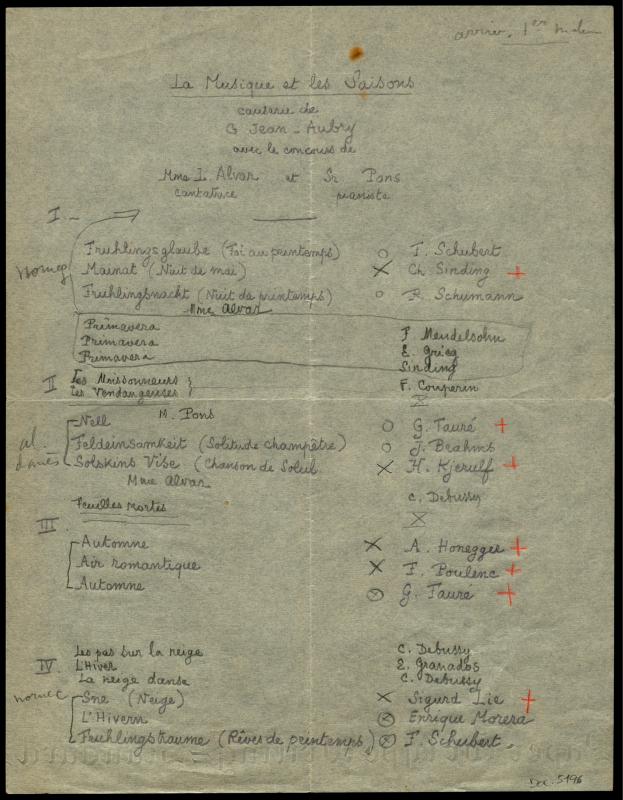 arriver. 1er
La Musique et les Saisons
causerie de
G Jean-Aubry
avec le concours de
Mme L. Alvar et Sr Pons
cantatrice pianiste
I. -
Fruhlingsglaube (Foi au printemps) o F. Schubert
norueg Mainat (Nuit de mai) X Ch Sinding +
Fruhlingsnacht (Nuit de printemps) o R. Schumann
Mme Alvar
Primavera F Mendelsohn
Primavera E. Grieg
Primavera Sinding
II Les Moissonneurs F. Couperin
Les Vendangeuses
M. Pons X
Nell o G. Fauré +
al. Feldeinsamkeit (Solitude champêtre) o J. Brahms
Solskins Vise (Chanson de Soleil X H. Kjerulf +
Mme Alvar
Feuilles mortes C. Debussy
III X
Automne X A. Honegger +
Air romantique X F. Poulenc +
Automne ⊗ G. Fauré +
Les pas sur la neige C. Debussy
IV L'Hiver E. Granados
La neige danse C. Debussy
Sne (Neige) X Sigurd Lie +
L'Hivern ⊗ Enrique Morera
Fruhlingstraume (Rêves de printemps) ⊗ F. Schubert.
5196